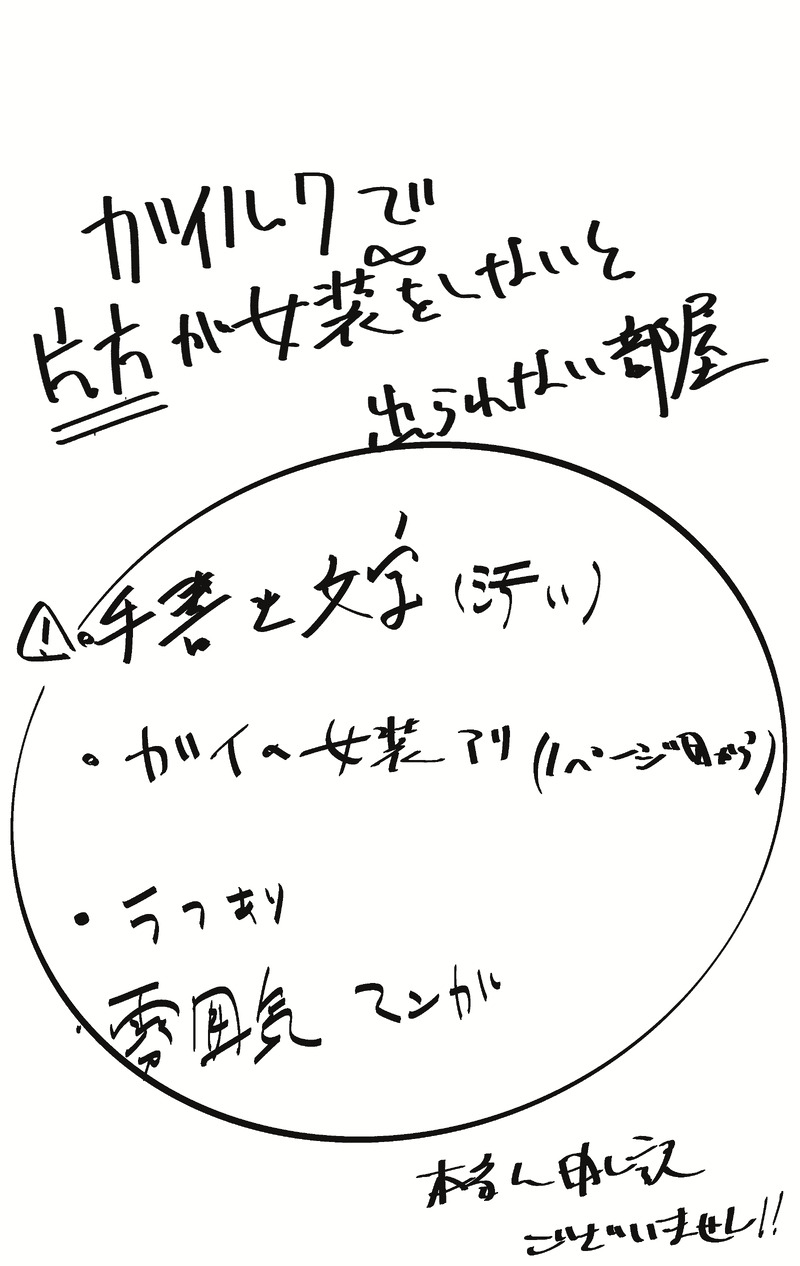 ガイルクで
片方が女装をしないと
出られない部屋
⚠・手書き文字(汚い)
・ガイの女装アリ(1ページ目から)
・うつあり
・雰囲気マンガ
申し訳
ございません!!